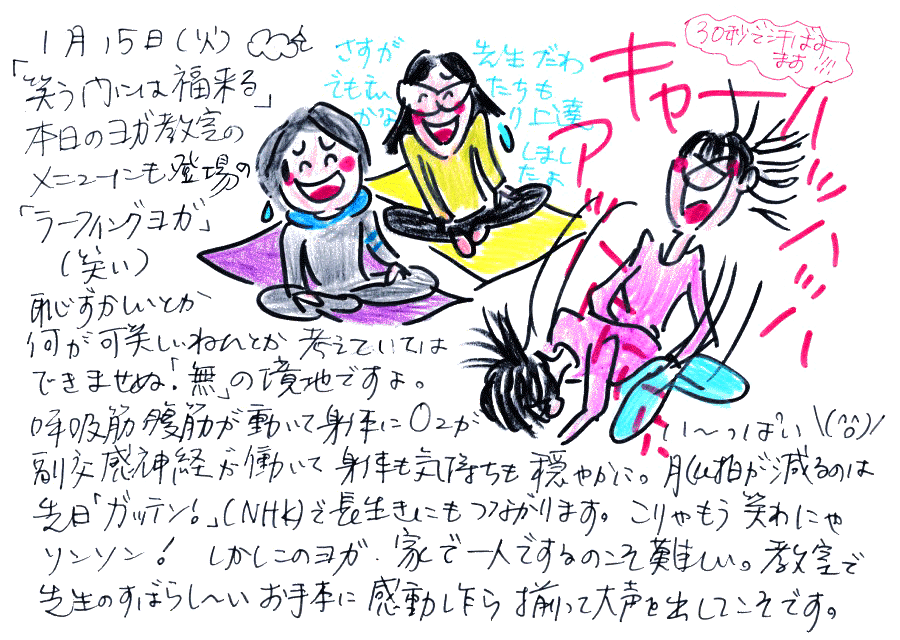 1月15日(火)
「笑う門には福来る」
本日のヨガ教室の
メニューにも登場の
「ラーフィングヨガ」
(笑い)
恥ずかしいとか
何が可笑しいねんとか考えていては
できませぬ!「無」の境地ですよ。
呼吸筋腹筋が動いて身体にO2が
い〜っぱい\(^o^)/
副交感神経が働いて身体も気持ちも穏やかに。心拍が減るのは
先日「ガッテン!」(NHK)で長生きにもつながります。こりゃもう笑わにゃ
ソンソン! しかしこのヨガ、家で一人でするのこそ難しい。教室で
先生のすばらし〜いお手本に感動したら揃って大声を出してこそです。
さすが
先生だわ
でも
たちも
かな
り上達
しまし
たよ
キャーハ
アッハッハッハッハッ
30秒で汗ばみ
ます!!!